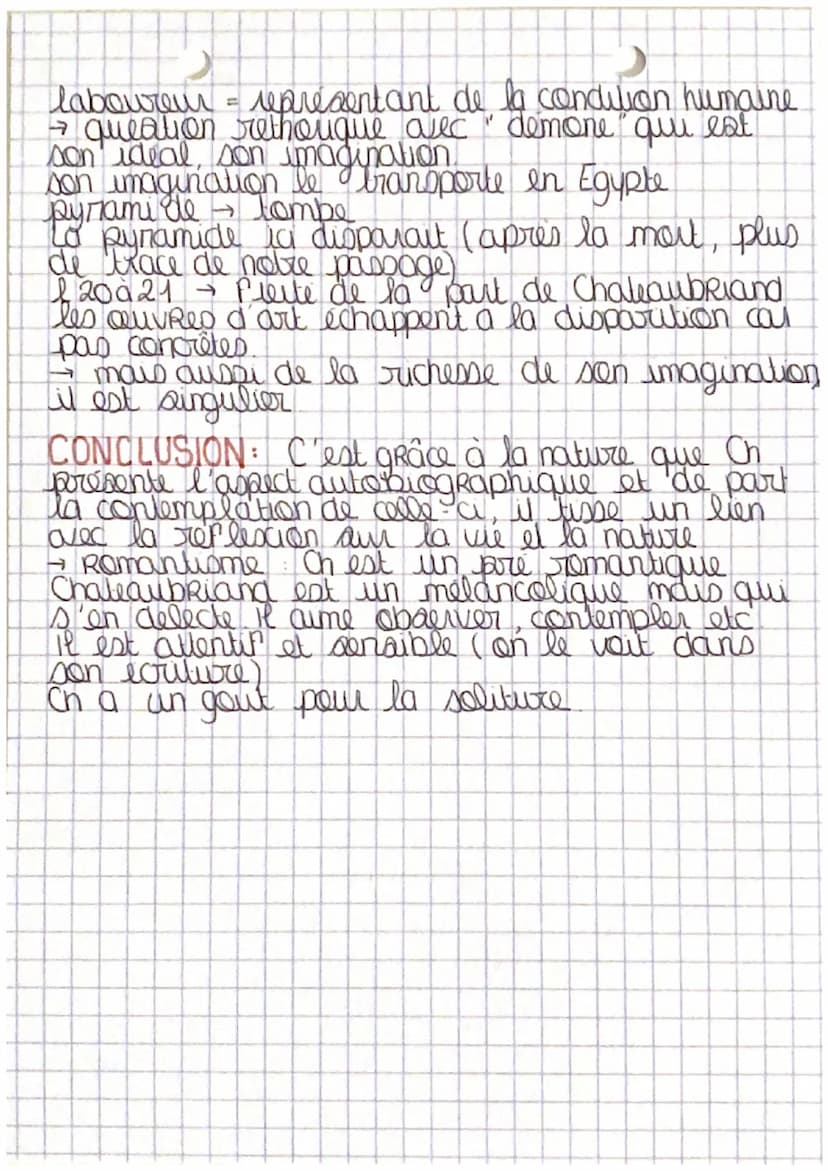 laboureur = représentant de la condition humaine
→ question rethorique avec "démone" qui est
son idéal, son imagination.
son imagination le transporte en Egypte
pyramide → tombe
La pyramide ici disparait (après la mort, plus
de trace de notre passage)
l 20 à 21 → fierté de la part de Chateaubriand
les œuvres d'art échappent a la disparition car
pas concrètes.
→ mais aussi de la richesse de son imagination,
il est singulier
CONCLUSION: C'est grâce à la nature que Ch
présente l'aspect autobiographique et de part
la contemplation de celle-ci, il tisse un lien
avec la réflexion sur la vie et la nature
→ Romantisme : Ch est un pré romantique
Chateaubriand est un mélancolique mais qui
s'en delecte. il aime observer, contempler etc
il est attentif et sensible (on le voit dans
son écriture)
Ch a un gout pour la soliture